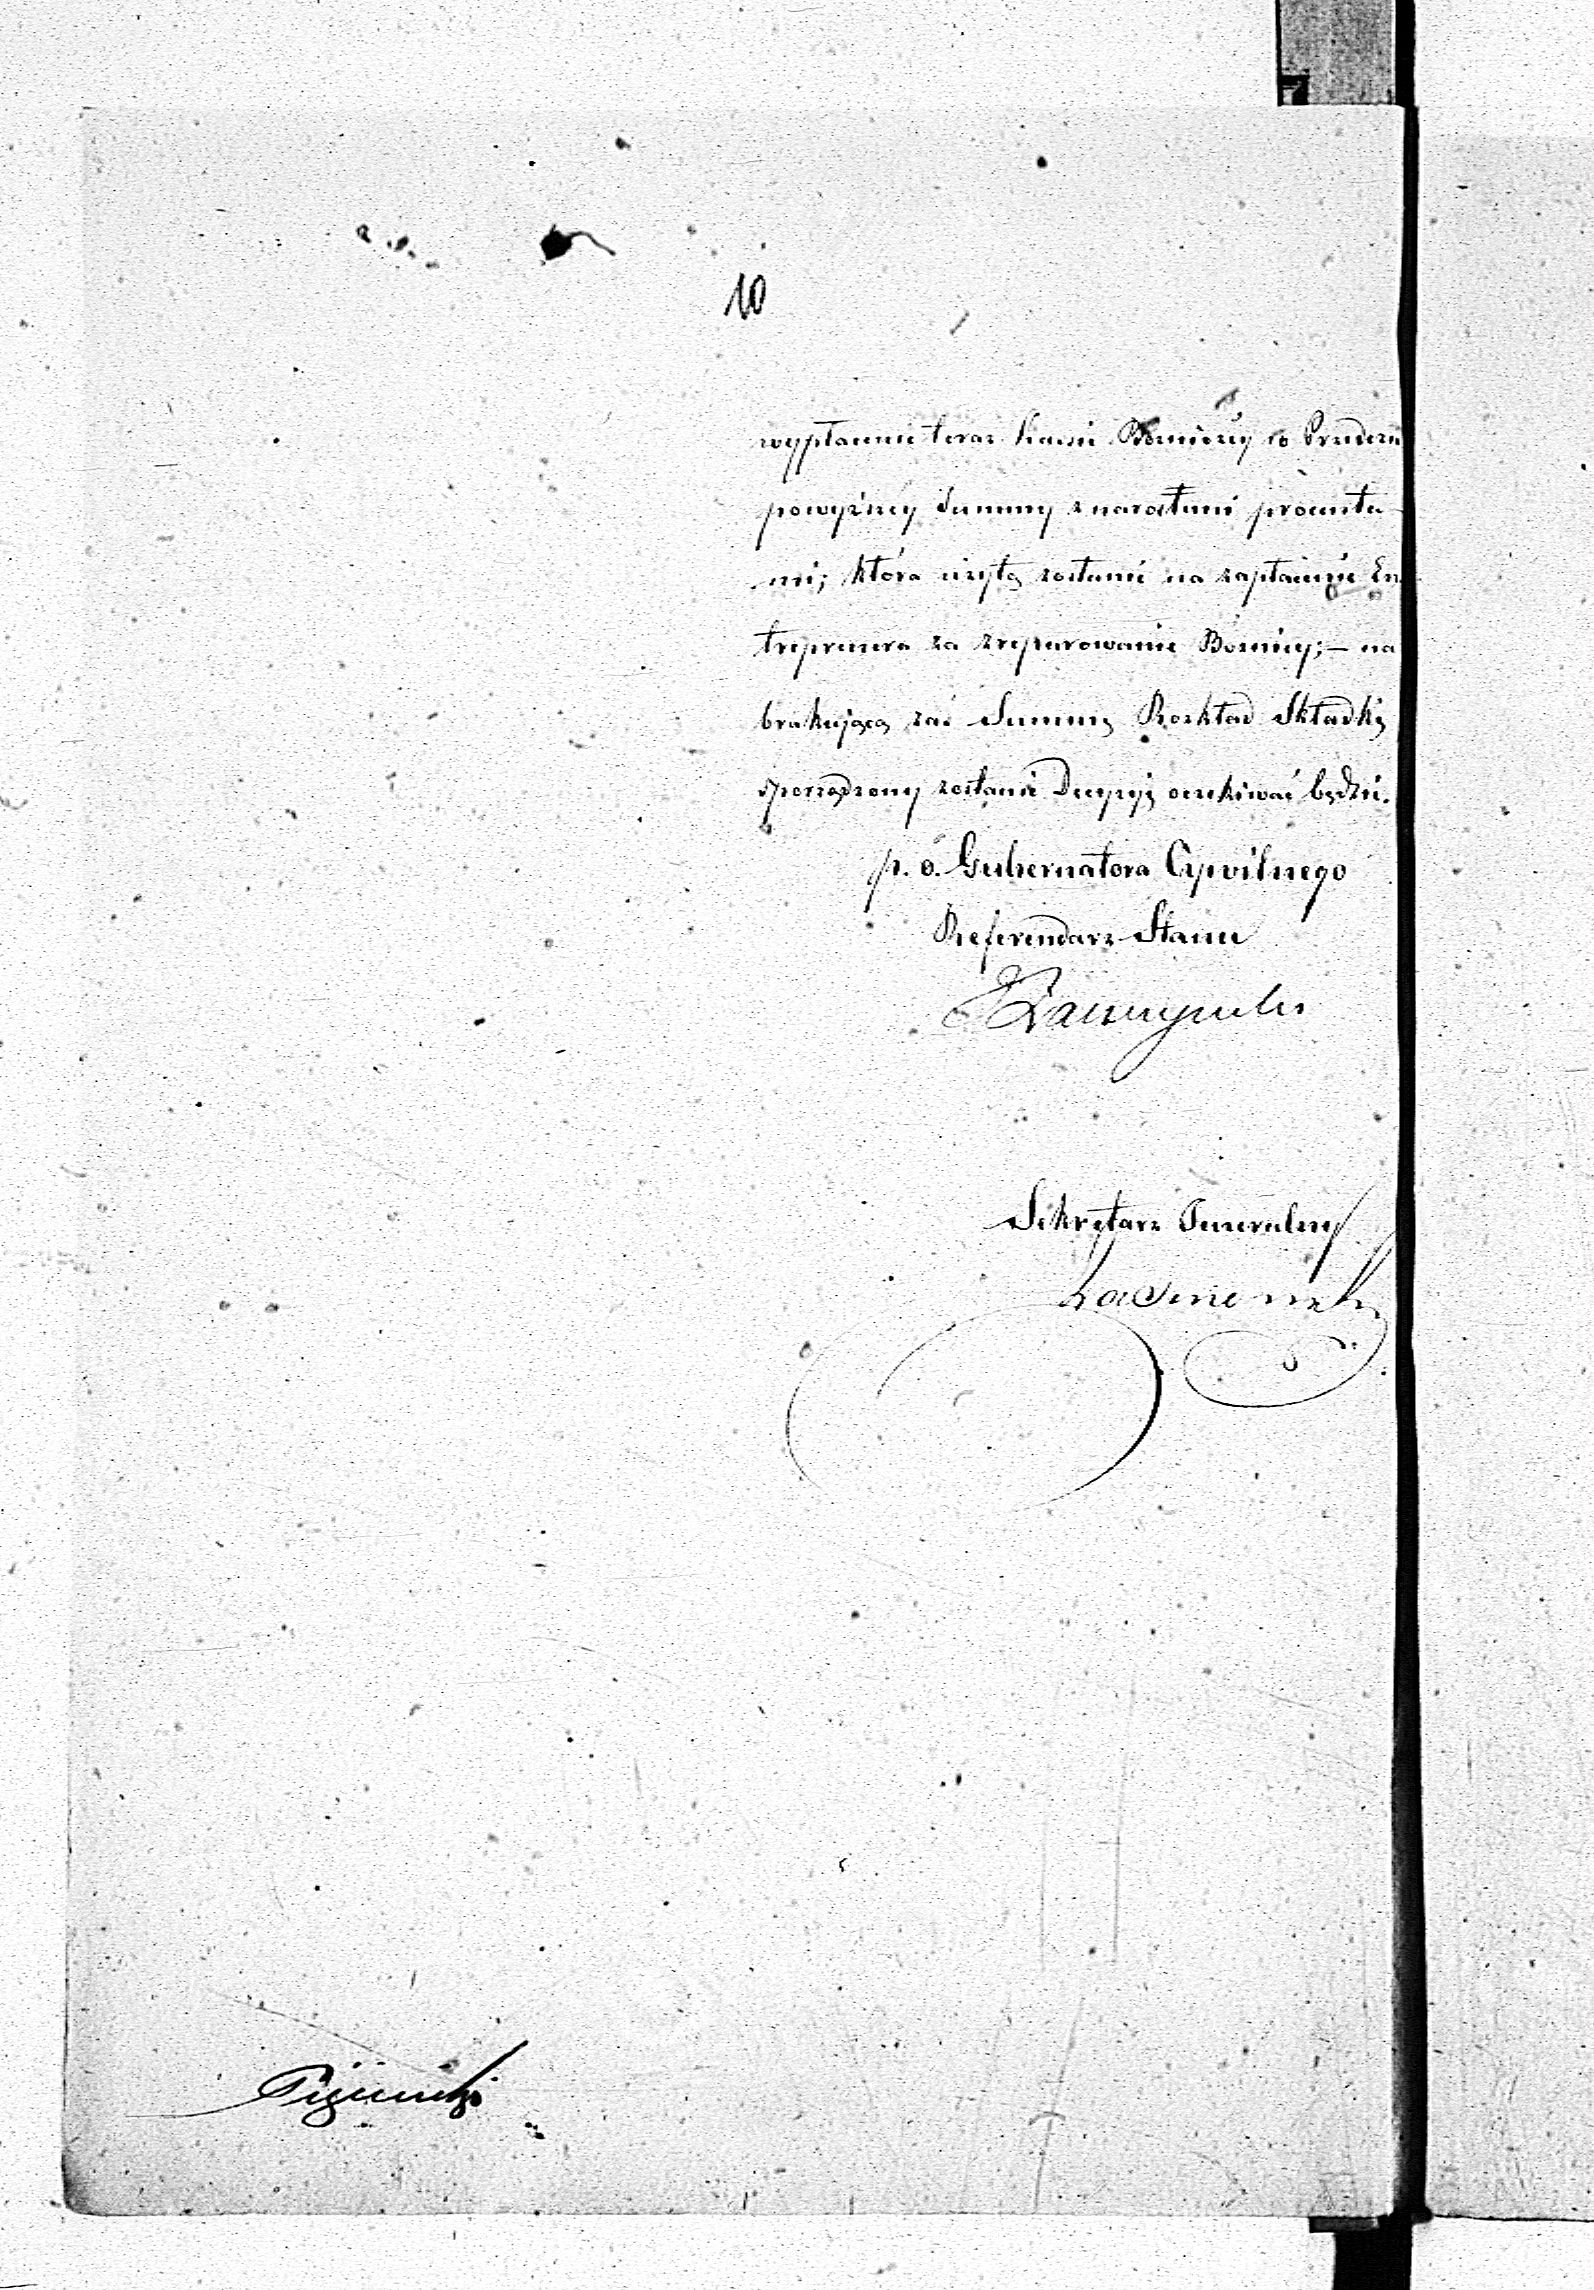 10
wypłacenie teraz Kassie Bożniczéy w Przedecz
powyższéy Summy z narosłemi procenta-
mi; która użytą zostanie na zapłacenie En
treprenera za zreparowanie Bożnicy; — na
brakującą zaś Summę Rozkład Składki
sporządzony zostanie Decyzyi oczekiwać będzie.
p. o. Gubernatora Cywilnego
Referendarz Stanu
Sekretarz Generalny